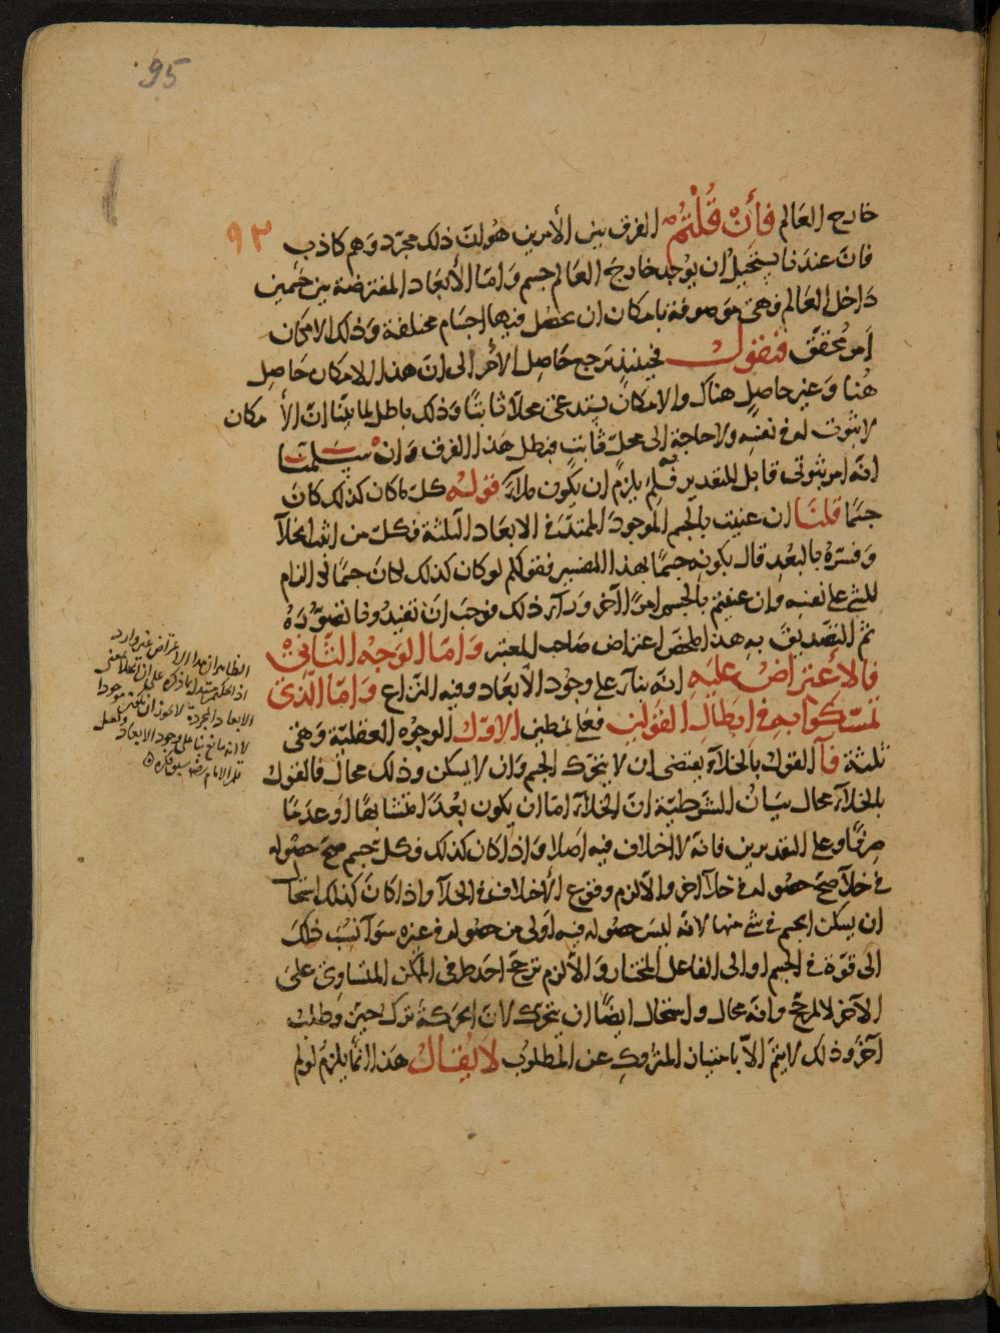 95
٩٣
خارج العالم فأنْ قُلْتُمْ الفرق بين الأمرين هُو انّ ذلك مجرّد وَهم كاذب
فانّ عندنا يستحيل ان يوجد خارج العالم جسم وَامّا الأبعاد المفترضة بين جسمين
دَاخل العالم فهي موصوفة بامكان ان يحصل فيها اجسام مختلفة وَذلك الامكان
اَمر مُحقّق فنقول فحينئذ يرجع حَاصل الأمر الى انّ هذا الامكان حاصل
هُنا وَغير حاصل هناك والامكان يستدعى محلاً ثابتًا وذلك باطل لما بيّنا انّ الأ مكان
لا ثبوت له فى نفسه ولا حاجة الى محلّ ثابت فبطل هَذا الفرق وَانْ سلّمنا
انّه امر ثبوتى قابل للتقدير فلِمَ يلزم ان يكون ملآءً قوله كلّ ما كان كذلك كانَ
جسمًا قلنا ان عنيت بالجسم الموجودَ الممتدَّ فى الابعاد الثلثة فكلّ من اثبت الخلآء
وَفسّرهُ بالبُعد قال بكونه جسمًا بهذا التفسير فقولكم لو كان كذلك لكانَ جسمًا الزام
للشئ على نفسه وان عنيتم بالجسم امرًا آخر وَرآء ذلك فوجب انّ تفيدونا تصوّرَهُ
ثم التصديق به هذا ملخّص اعتراض صَاحب المعتبر وَامّا الوَجْه الثّانى
فالأعتراضُ عليَه انّه بنآء على وجُود الأبعاد وفيه النزاع وَامّا الّذى
تمسّكوا به فى ابطال القولين فعلى نمطين الاوّل الوجُوه العقليّة وَهى
ثلثة فآ القول بالخلآء يقتضى ان لا يتحرّك الجسم وَان لا يسكن وذلك محال فالقول
بالخلآء محال بيَانُ الشرطيّة انّ الخلآء امّا ان يكون بُعْدًا متشابهًا او عدَمًا
صرفًا وعلى التقديرين فانّه لا اختلاف فيه اصلا وَاذا كان كذلك فكلّ جسم صحّ حصُوله
فى خلآء صحّ حصُوله فى خلآء آخر والّا لزم وقوع الأختلاف فى الخلآء واذا كانَ كذلك استحا
ان يسكن الجسم فى شئ منها لانّه ليسَ حصُوله فيه اَولى من حصُوله فى غيره سوَآء نُسبَ ذلكَ
الى قوّة فى الجسم او الى الفاعل المختار وَالّا لزم ترجّح احد طرفى الممكن المتساوى على
الآخر لا لمرجّح وانّه محال واستحال ايضًا ان يتحرّك لانّ الحركةُ ترك حيّزٍ وطلب
آخر وذلك لا يتمّ الّا بامتياز المتروك عن المطلوبُ لا يُقال هَذا انّما يلزمُ لو لم
الظاهر ان هذا الاعتراض غير وارد